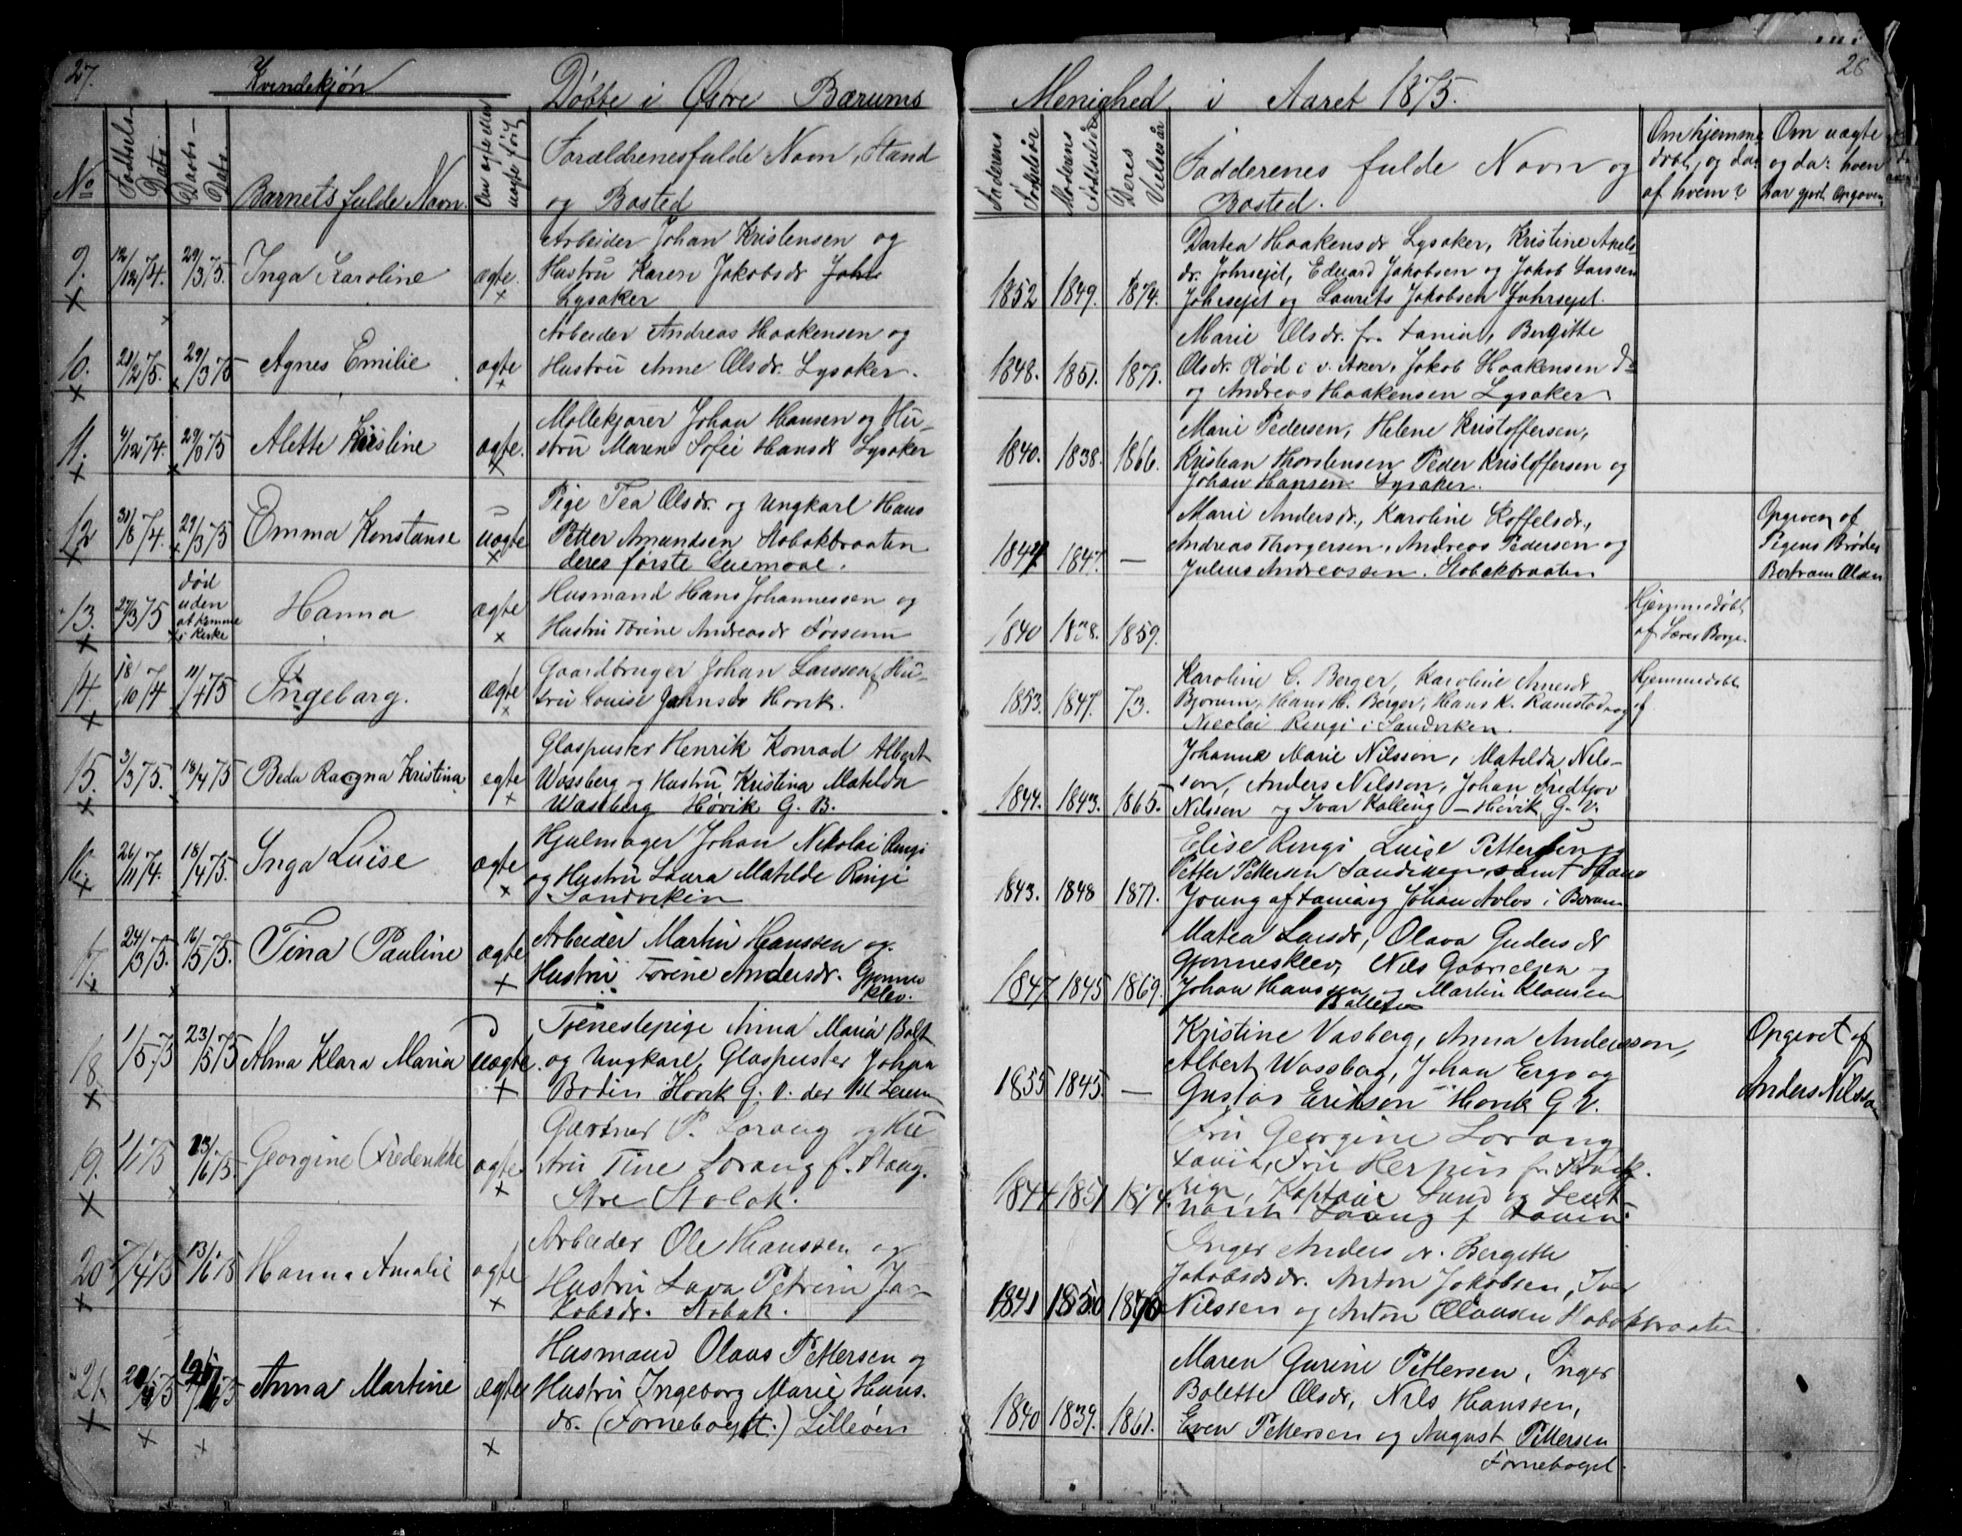 27.
Kvindekjøn
Døbte i Østre Bærums
Menighed i Aaret 1875.
No
Fødsels-Dato
Daabs-Dato
Barnets fulde Navn.
Om ægte eller uægte født
Forældrenes fulde Navn, Stand
og Bosted
Faderens Fødselsår
Moderens Fødselsår
Deres Vielsesår
Fadderenes fulde Navn og
Bosted.
Om hjemme-
døbt, og da:
af hvem?
Om uægte
og da: hvem
har gjort Opgaven
9.
12/12 74.
29/3 75.
Inga Karoline
ægte.
Arbeider Johan Kristensen og
Hustru Karen Jakobsdr
Lysaker
1852
1849.
1874.
Dortea Haakensdr Lysaker, Kristine Axels-
dr. Eduard Jakobsen og Jakob Larssen
og Laurits Jakobsen
10.
21/2 75.
29/3 75
Agnes Emilie
ægte
Arbeider Andreas Haakensen og
Hustru Anne Olsdr. Lysaker.
1848.
1851.
1871.
Marie Olsdr. fr. Bergitte
Olsdr. Rød i v. Aker, Jakob Haakensen
og Andreas Haakensen Lysaker
11.
4/12 74.
29/3 75
Alette Kristine
ægte.
Møllekjører Johan Hansen og Hu-
stru Maren Sofie Hansdr Lysaker
1840.
1838.
1866.
Marie Pedersen, Helene Kristoffersen,
Kristian Thorstensen Peder Kristoffersen og
Johan Hansen Lysaker.
12
31/8 74.
29/3 75
Emma Konstanse
uægte
Pige Tea Olsdr. og Ungkarl Hans
Petter Amundsen Stobakbraaten
deres første Leiemaal.
1847.
—
Marie Andersdr., Karoline Koffelsdr.,
Andreas Thorgersen, Andreas Pedersen og
Julius Andreassen. Stobakbraaten
Opgiven af
Pigens Broder
Bertram Olsen
13.
27/3 75
død
uden
at komme
i Kirke
Hanna
ægte
Husmand Hans Johannessen og
Hustru Torine Andreasdr
1840
1838.
1859.
Hjemmedøbt
af Lærer Borge
14.
18/10 74
11/4 75
Ingeborg.
ægte
Gaardbruger Johan Larssen, Hu-
stru Louise Høvik.
1853.
1847.
73.
Karoline C. Berger, Karoline Arnesdr
Bjorum, Hans H. Berger, Hans K. Ramstad og
Nicolai Ringi i Sandviken.
Hjemmedøbt
af
15.
3/3 75.
18/4 75
Beda Ragna Kristina
egte
Glaspuster Henrik Konrad Albert
Wassberg og Hustru, Kristina Matilda
Wasberg Høvik G. V.
1844.
1843.
1865.
Johanna Marie Nilsson, Matilda Nils-
son, Anders Nilsson, Johan Fredtjov
Nilsson og Ivar Kolling — Høvik G. V.
16.
26/11 74.
18/4 75.
Inga Luise
ægte
Hjulmager Johan Nikolai Ringi
og Hustru Laura Matilde Ringi
Sandviken
1843.
1848
1871.
Elise Ringi Luise Pettersen,
Petter Pettersen Sandviken, samt Hans
Joung af og Johan i Bærum
17.
24/3 75.
16/5 75.
Tina Pauline
ægte
Arbeider Martin Hanssen og
Hustru Torine Andersdr. Gjønnes-
klev.
1847
1845
1869.
Matea Larsdr, Olava Gudersdr
Gjønnesklev, Nils Gabrielsen og
Johan Hanssen og Martin Klausen
Ballerud
18.
1/5 75
23/5 75
Alma Klara Maria
uægte.
Tjenestepige Anna Maria Bolt
og Ungkarl, Glaspuster Johan
Bodin Høvik G. V. der 1st Leiem
1855
1845.
—
Kristine Vasberg, Anna Andersson,
Albert Wassberg, Johan Ergo og
Gustav Erikson Høvik G V.
Opgivet af
Anders Nilsson
19.
13/6 75
Georgine Fredrikke
ægte
Gartner P. Lorang og Hu-
stru Tine Lorang f. Stang.
Store Stabæk.
1844
1851
1874.
Fru Georgine Lorang
Fru
Kaptain Lund og Leut-
nant Lorang f
20
7/4 75
13/6 75
Hanna Amalie
ægte
Arbeider Ole Hanssen og
Hustru Lava Petrine Ja-
kobsdr. Stobak.
1841
1850
1870
Inger Andersdr. Bergitte
Jakobsdr. Anton Jakobsen, Iver
Nilssen og Anton Olaussen Stobakbraaten.
21.
Anna Martine
ægte
Husmand Olaus Pettersen og
Hustru Ingeborg Marie Hans-
dr. (Fornebogst.) Lilleøen
1840
1839.
1861.
Maren Gurine Pettersen, Inger
Bolette Olsdr, Nils Hanssen,
Even Pettersen og August Pettersen
Fornebogst.